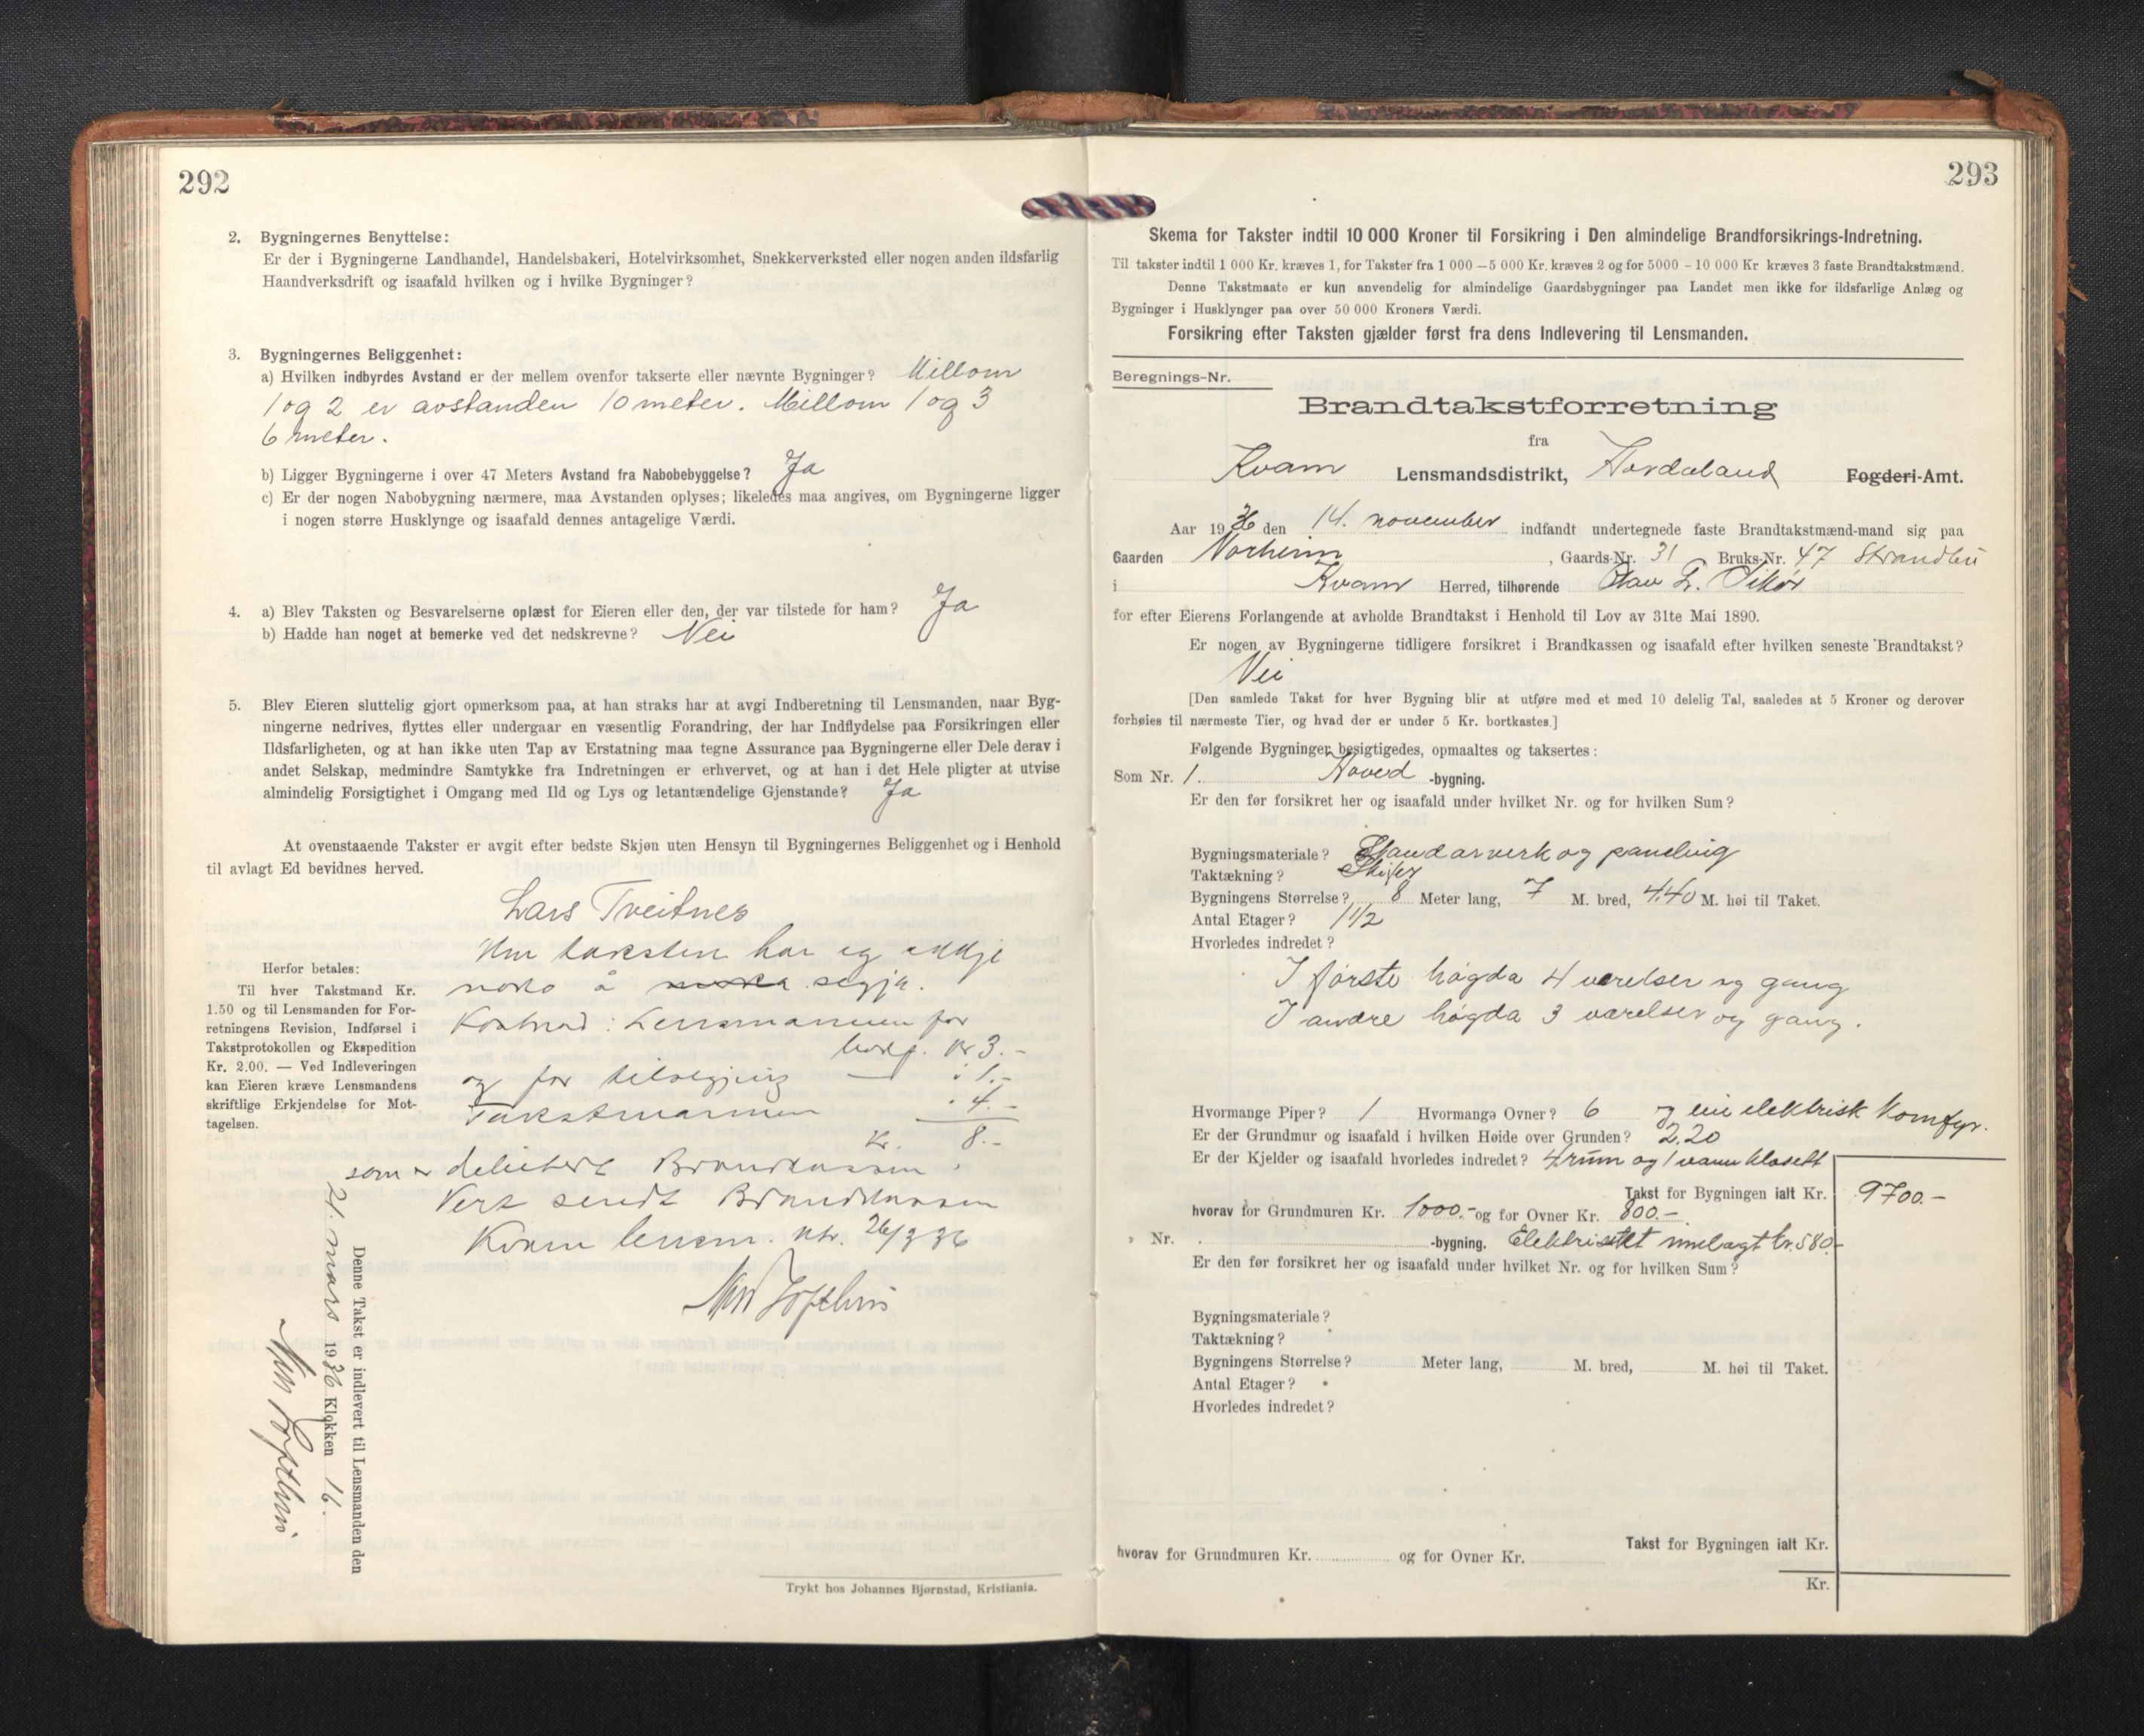 292
2. Bygningernes Benyttelse:
Er der i Bygningerne Landhandel, Handelsbakeri, Hotelvirksomhet, Snekkerverksted eller nogen anden ildsfarlig
Haandverksdrift og isaafald hvilken og i hvilke Bygninger?
3. Bygningernes Beliggenhet:
a) Hvilken indbyrdes Avstand er der mellem ovenfor takserte eller nævnte Bygninger? Millom
1 og 2 er avstanden 10 meter. Millom 1 og 3
6 meter.
b) Ligger Bygningerne i over 47 Meters Avstand fra Nabobebyggelse? Ja
c) Er der nogen Nabobygning nærmere, maa Avstanden oplyses; likeledes maa angives, om Bygningerne ligger
i nogen større Husklynge og isaafald dennes antagelige Værdi.
4. a) Blev Taksten og Besvarelserne oplæst for Eieren eller den, der var tilstede for ham? Ja
b) Hadde han noget at bemerke ved det nedskrevne? Nei
5. Blev Eieren sluttelig gjort opmerksom paa, at han straks har at avgi Indberetning til Lensmanden, naar Byg-
ningerne nedrives, flyttes eller undergaar en væsentlig Forandring, der har Indflydelse paa Forsikringen eller
Ildsfarligheten, og at han ikke uten Tap av Erstatning maa tegne Assurance paa Bygningerne eller Dele derav i
andet Selskap, medmindre Samtykke fra Indretningen er erhvervet, og at han i det Hele pligter at utvise
almindelig Forsigtighet i Omgang med Ild og Lys og letantændelige Gjenstande? Ja
At ovenstaaende Takster er avgit efter bedste Skjøn uten Hensyn til Bygningernes Beliggenhet og i Henhold
til avlagt Ed bevidnes herved.
Lars Tveitnes
Um taksten har eg ikkje
noko å segja.
Kostnad: Lensmannen for
bokf. kr 3.-
og for tilsegjing — " 1.-
Takstmannen " 4.-
Kr. 8.-
som er debitert Brandkassen.
Vert sendt Brandkassen
Kvam lensm. ktr. 26/3 36
Herfor betales:
Til hver Takstmand Kr.
1.50 og til Lensmanden for For-
retningens Revision, Indførsel i
Takstprotokollen og Ekspedition
Kr. 2.00. — Ved Indleveringen
kan Eieren kræve Lensmandens
skriftlige Erkjendelse for Mot-
tagelsen.
Denne Takst er indlevert til Lensmanden den
21. mars 1936 Klokken 16.
Trykt hos Johannes Bjørnstad, Kristiania.
293
Skema for Takster indtil 10 000 Kroner til Forsikring i Den almindelige Brandforsikrings-Indretning.
Til takster indtil 1 000 Kr. kræves 1, for Takster fra 1 000 — 5 000 Kr. kræves 2 og for 5000 - 10 000 Kr kræves 3 faste Brandtakstmænd.
Denne Takstmaate er kun anvendelig for almindelige Gaardsbygninger paa Landet men ikke for ildsfarlige Anlæg og
Bygninger i Husklynger paa over 50 000 Kroners Værdi.
Forsikring efter Taksten gjælder først fra dens Indlevering til Lensmanden.
Beregnings-Nr.
Brandtakstforretning
fra
Kvam Lensmandsdistrikt, Hordaland Fogderi-Amt.
Aar 1936 den 14. november indfandt undertegnede faste Brandtakstmænd-mand sig paa
Gaarden Norheim, Gaards-Nr. 31 Bruks-Nr. 47 Strandbu
i Kvam Herred, tilhørende Olav L.
for efter Eierens Forlangende at avholde Brandtakst i Henhold til Lov av 31te Mai 1890.
Er nogen av Bygningerne tidligere forsikret i Brandkassen og isaafald efter hvilken seneste Brandtakst?
Nei
[Den samlede Takst for hver Bygning blir at utføre med et med 10 delelig Tal, saaledes at 5 Kroner og derover
forhøies til nærmeste Tier, og hvad der er under 5 Kr. bortkastes.]
Følgende Bygninger besigtigedes, opmaaltes og taksertes:
Som Nr. 1. Hoved -bygning.
Er den før forsikret her og isaafald under hvilket Nr. og for hvilken Sum?
Bygningsmateriale? Standarverk og paneling
Taktækning? Skifer
Bygningens Størrelse? 8 Meter lang, 7 M. bred, 4.40 M. høi til Taket.
Antal Etager? 1 1/2
Hvorledes indredet?
I første høgda 4 værelser og gang
I andre høgda 3 værelser og gang.
Hvormange Piper? 1 Hvormange Ovner? 6 og ein elektrisk komfyr.
Er der Grundmur og isaafald i hvilken Høide over Grunden? 2.20
Er der Kjelder og isaafald hvorledes indredet? 4 rum og 1 vann klosett
Takst for Bygningen ialt Kr. 9700.-
hvorav for Grundmuren Kr. 1000.- og for Ovner Kr. 800.-
Nr. -bygning. Elektrisitet innlagt kr. 580.-
Er den før forsikret her og isaafald under hvilket Nr. og for hvilken Sum?
Bygningsmateriale?
Taktækning?
Bygningens Størrelse? Meter lang, M. bred, M. høi til Taket.
Antal Etager?
Hvorledes indredet?
Takst for Bygningen ialt Kr.
hvorav for Grundmuren Kr. og for Ovner Kr.
Kr.